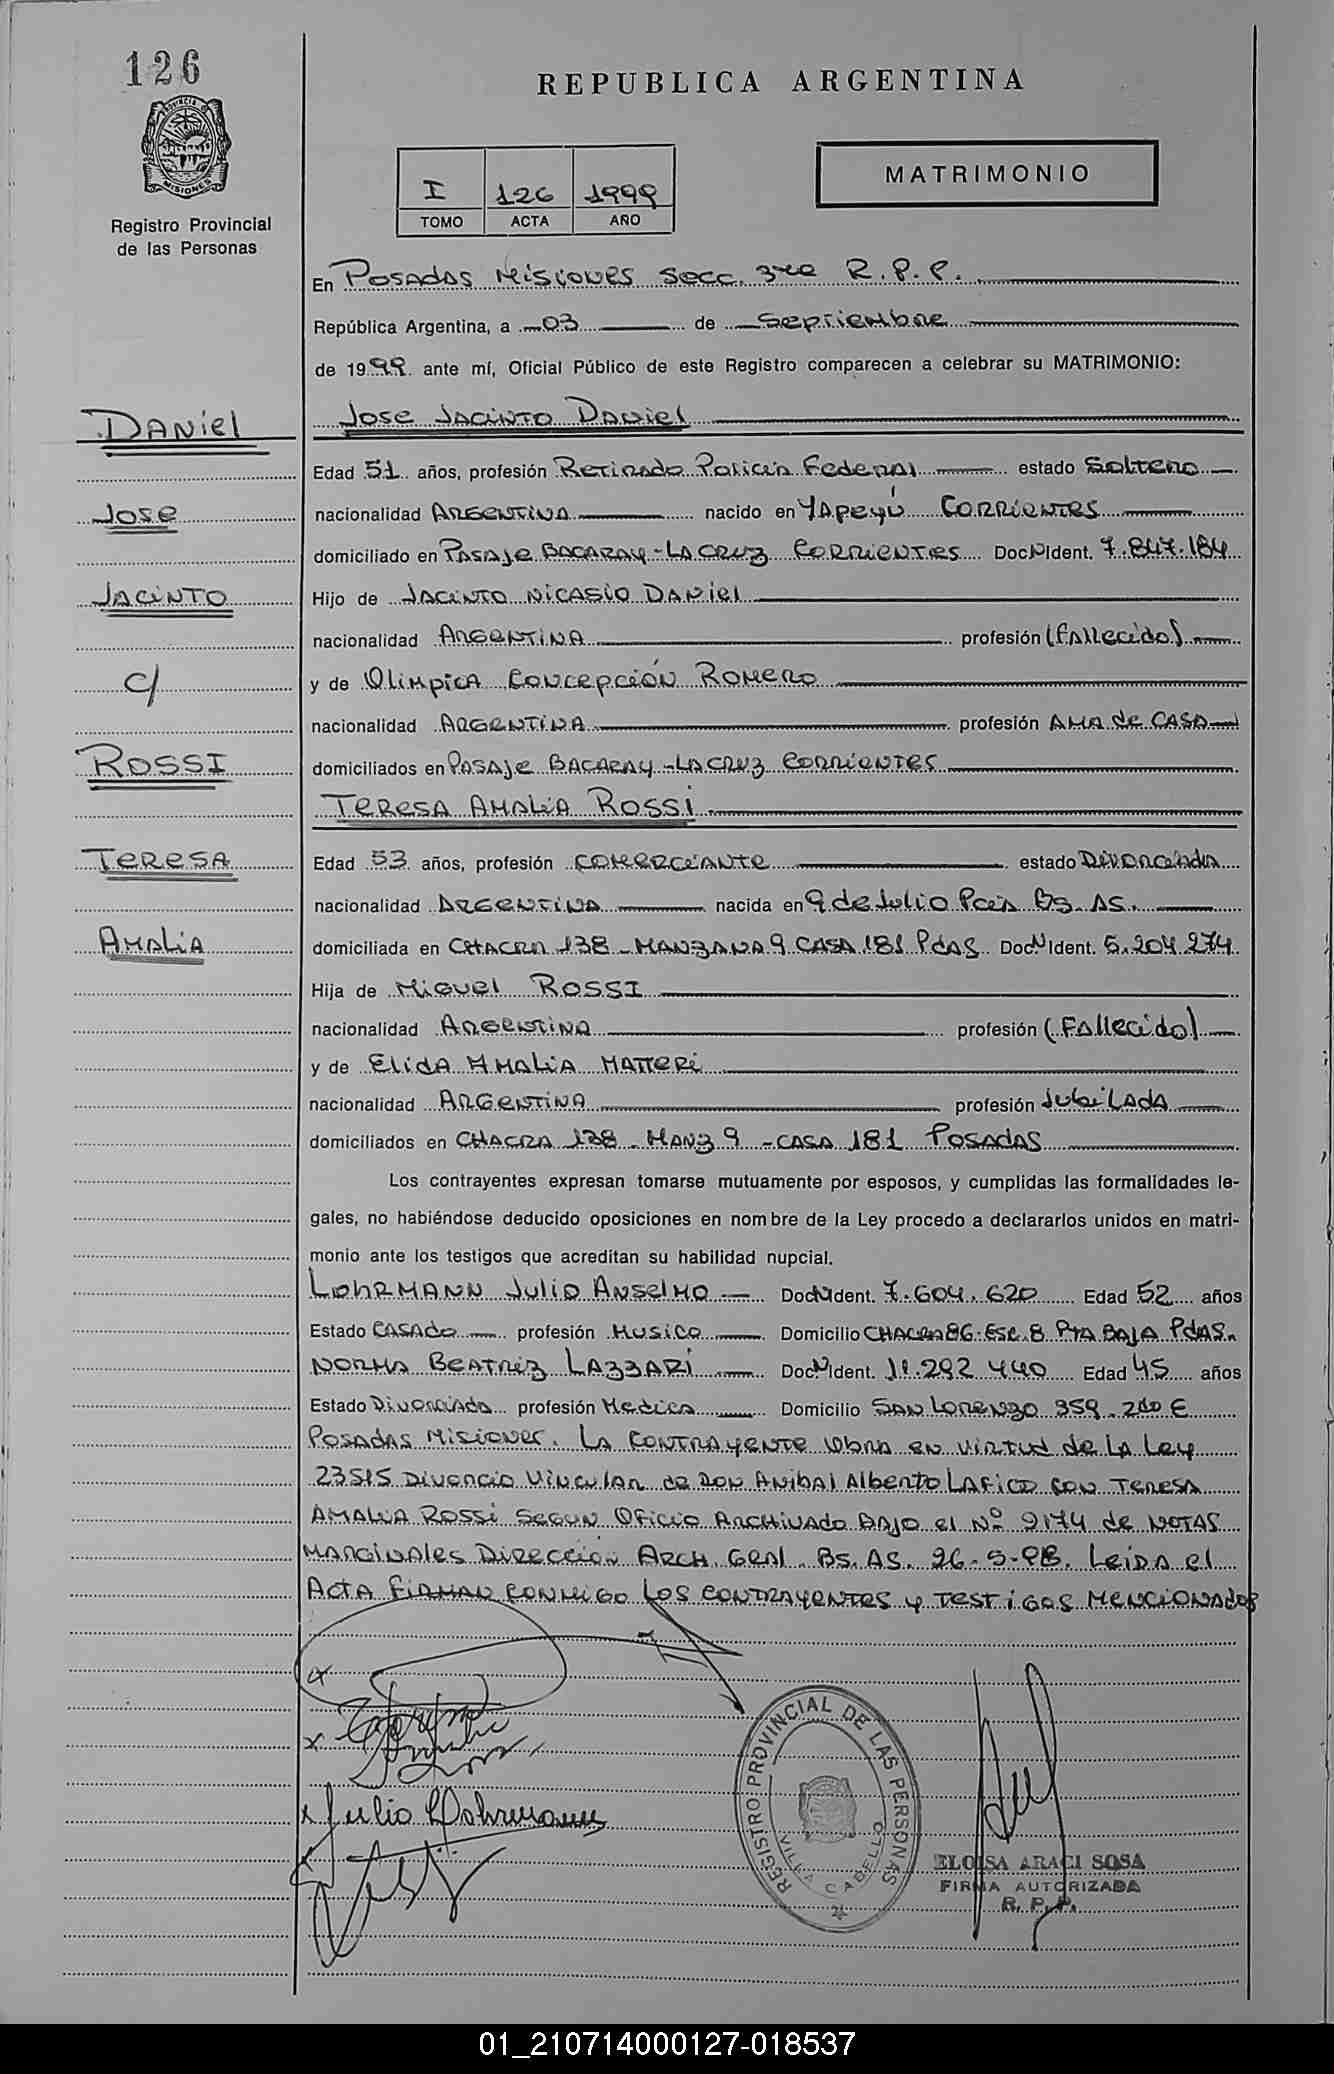 126
REPUBLICA ARGENTINA
PROVINCIA DE
MISIONES
Registro Provincial
de las Personas
I 126 1999
TOMO ACTA AÑO
MATRIMONIO
En Posadas Misiones Secc. 3ra R.P.P.
República Argentina, a 03 de Septiembre
de 1999 ante mí, Oficial Público de este Registro comparecen a celebrar su MATRIMONIO:
Daniel
Jose Jacinto Daniel
Edad 51 años, profesión Retirado Policia Federal estado Soltero
Jose
nacionalidad Argentina nacido en Yapeyú Corrientes
domiciliado en Pasaje Bacaray - La Cruz Corrientes Doc N Ident. 7.847.184
Jacinto
Hijo de Jacinto Nicasio Daniel
nacionalidad Argentina profesión (Fallecido)
c/
y de Olimpica Concepción Romero
nacionalidad Argentina profesión Ama de casa
Rossi
domiciliados en Pasaje Bacaray - La Cruz Corrientes
Teresa Amalia Rossi
Teresa
Edad 53 años, profesión Comerciante estado Divorciada
nacionalidad Argentina nacida en 9 de Julio Pcia Bs. As.
Amalia
domiciliada en Chacra 138 - Manzana 9 Casa 181 Pdas Doc N Ident. 5.204.274
Hija de Miguel Rossi
nacionalidad Argentina profesión (Fallecido)
y de Elida Amalia Matteri
nacionalidad Argentina profesión Jubilada
domiciliados en Chacra 138 - Manz 9 - Casa 181 Posadas
Los contrayentes expresan tomarse mutuamente por esposos, y cumplidas las formalidades le-
gales, no habiéndose deducido oposiciones en nombre de la Ley procedo a declararlos unidos en matri-
monio ante los testigos que acreditan su habilidad nupcial.
Lohrmann Julio Anselmo Doc N Ident. 7.604.620 Edad 52 años
Estado Casado profesión Musico Domicilio Chacra 86 - Esc. 8 Pta Baja Pdas.
Norma Beatriz Lazzari Doc N Ident. 11.292 440 Edad 45 años
Estado Divorciada profesión Medica Domicilio San Lorenzo 359 - 2do E
Posadas Misiones. La contrayente obra en virtud de la Ley
23515 Divorcio Vincular de Don Anibal Alberto Lafico con Teresa
Amalia Rossi segun Oficio Archivado bajo el Nº 9174 de Notas
Marginales Dirección Arch. Gral. Bs. As. 26-5-98. Leida el
Acta firman conmigo los contrayentes y testigos mencionados
x
x
x Julio Lohrmann
x
REGISTRO PROVINCIAL DE LAS PERSONAS
VILLA CABELLO
ELOISA ARACI SOSA
FIRMA AUTORIZADA
R. P. P.
01_210714000127-018537